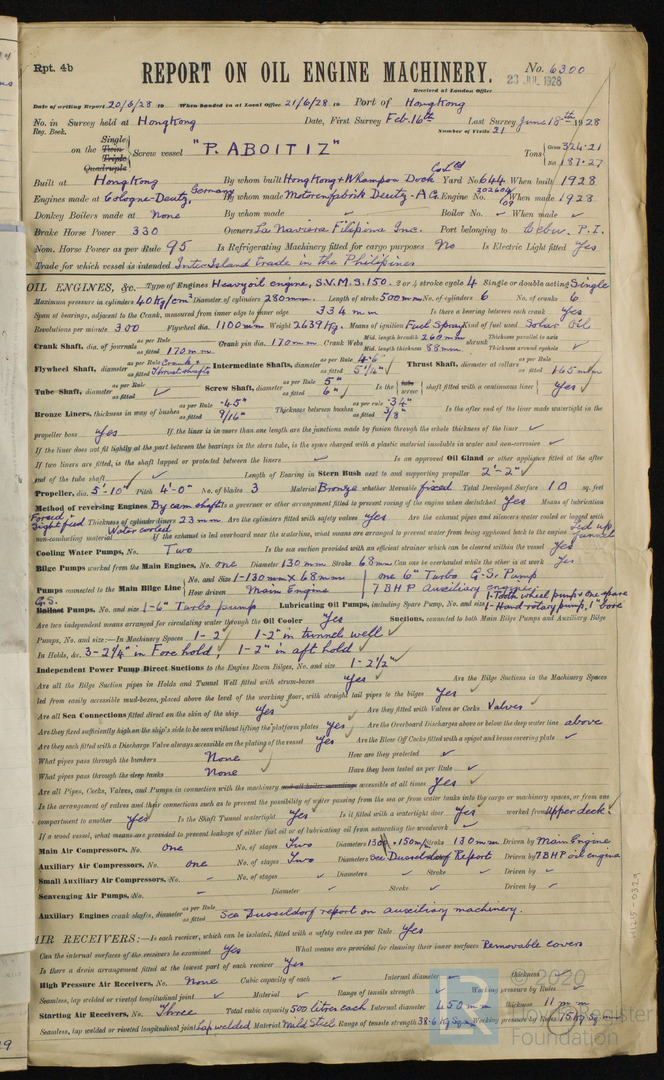 Rpt. 4b
REPORT ON OIL ENGINE MACHINERY.
No. 6300
23 JUL 1928
Received at London Office
Date of writing Report 20/6/28 19 When handed in at Local Office 21/6/28 19 Port of HongKong
No. in Survey held at HongKong Date, First Survey Feb. 16th Last Survey June 18th 1928
Reg. Book. Number of Visits 21
on the Single Twin Triple Quadruple Screw vessel "P. ABOITIZ" Tons Gross 324.21 Net 187.27
Built at HongKong By whom built HongKong & Whampoa Dock Co Ltd Yard No. 644 When built 1928
Engines made at Cologne-Deutz, Germany By whom made Motorenfabrik Deutz-A.G. Engine No. 302602/09 When made 1928
Donkey Boilers made at None By whom made ✓ Boiler No. ✓ When made ✓
Brake Horse Power 330 Owners La Naviera Filipina Inc. Port belonging to Cebu. P.I.
Nom. Horse Power as per Rule 95 Is Refrigerating Machinery fitted for cargo purposes No Is Electric Light fitted Yes
Trade for which vessel is intended Inter Island trade in the Philipines
OIL ENGINES, &c.—Type of Engines Heavy oil engine, S.V.M.S.150. 2 or 4 stroke cycle 4 Single or double acting Single
Maximum pressure in cylinders 40 Kg/cm² Diameter of cylinders 280 mm. Length of stroke 500 mm No. of cylinders 6 No. of cranks 6
Span of bearings, adjacent to the Crank, measured from inner edge to inner edge 334 mm Is there a bearing between each crank Yes
Revolutions per minute 300 Flywheel dia. 1100 mm Weight 2639 Kg. Means of ignition Fuel Spray Kind of fuel used Solar Oil
Crank Shaft, dia. of journals as per Rule as fitted 170 mm Crank pin dia. 170 mm Crank Webs Mid. length breadth 260 mm Mid. length thickness 88 mm shrunk Thickness parallel to axis Thickness around eyehole ✓
Flywheel Shaft, diameter as per Rule Crank & as fitted Thrust shafts Intermediate Shafts, diameter as per Rule 4.6" as fitted 5 1/4" Thrust Shaft, diameter at collars as per Rule as fitted 165 mm
Tube Shaft, diameter as per Rule as fitted ✓ Screw Shaft, diameter as per Rule 5" as fitted 6" Is the tube screw shaft fitted with a continuous liner Yes
Bronze Liners, thickness in way of bushes as per Rule .45" as fitted 9/16" Thickness between bushes as per rule .34" as fitted 3/8" Is the after end of the liner made watertight in the
propeller boss Yes If the liner is in more than one length are the junctions made by fusion through the whole thickness of the liner ✓
If the liner does not fit tightly at the part between the bearings in the stern tube, is the space charged with a plastic material insoluble in water and non-corrosive ✓
If two liners are fitted, is the shaft lapped or protected between the liners ✓ Is an approved Oil Gland or other appliance fitted at the after
end of the tube shaft ✓ Length of Bearing in Stern Bush next to and supporting propeller 2'-2"
Propeller, dia. 5'-10" Pitch 4'-0" No. of blades 3 Material Bronze whether Moveable fixed Total Developed Surface 10 sq. feet
Method of reversing Engines By cam shaft Is a governor or other arrangement fitted to prevent racing of the engine when declutched Yes Means of lubrication
Forced, Sight feed Thickness of cylinder liners 23 mm Are the cylinders fitted with safety valves Yes Are the exhaust pipes and silencers water cooled or lagged with
non-conducting material Water cooled If the exhaust is led overboard near the waterline, what means are arranged to prevent water from being syphoned back to the engine Led up funnel
Cooling Water Pumps, No. Two Is the sea suction provided with an efficient strainer which can be cleared within the vessel Yes
Bilge Pumps worked from the Main Engines, No. One Diameter 130 mm Stroke 68 mm Can one be overhauled while the other is at work Yes
Pumps connected to the Main Bilge Line No. and Size 1-130 mm x 68 mm one 6" Turbo G.S. Pump
How driven Main Engine 7 BHP Auxiliary engine
G.S. Ballast Pumps, No. and size 1-6" Turbo pump Lubricating Oil Pumps, including Spare Pump, No. and size 1-Tooth wheel pump & one spare 1-Hand rotary pump, 1" bore
Are two independent means arranged for circulating water through the Oil Cooler Yes Suctions, connected to both Main Bilge Pumps and Auxiliary Bilge
Pumps, No. and size:—In Machinery Spaces 1-2" 1-2" in tunnel well
In Holds, &c. 3-2 1/4" in Fore hold, 1-2" in aft hold
Independent Power Pump Direct Suctions to the Engine Room Bilges, No. and size 1-2 1/2"
Are all the Bilge Suction pipes in Holds and Tunnel Well fitted with strum-boxes Yes Are the Bilge Suctions in the Machinery Spaces
led from easily accessible mud-boxes, placed above the level of the working floor, with straight tail pipes to the bilges Yes
Are all Sea Connections fitted direct on the skin of the ship Yes Are they fitted with Valves or Cocks Valves
Are they fixed sufficiently high on the ship's side to be seen without lifting the platform plates Yes Are the Overboard Discharges above or below the deep water line above
Are they each fitted with a Discharge Valve always accessible on the plating of the vessel Yes Are the Blow Off Cocks fitted with a spigot and brass covering plate ✓
What pipes pass through the bunkers None How are they protected ✓
What pipes pass through the deep tanks None Have they been tested as per Rule ✓
Are all Pipes, Cocks, Valves, and Pumps in connection with the machinery and all boiler mountings accessible at all times Yes
Is the arrangement of valves and their connections such as to prevent the possibility of water passing from the sea or from water tanks into the cargo or machinery spaces, or from one
compartment to another Yes Is the Shaft Tunnel watertight Yes Is it fitted with a watertight door Yes worked from Upper deck.
If a wood vessel, what means are provided to prevent leakage of either fuel oil or of lubricating oil from saturating the woodwork ✓
Main Air Compressors, No. One No. of stages Two Diameters 130 + 150 m/m Stroke 130 mm Driven by Main Engine
Auxiliary Air Compressors, No. one No. of stages Two Diameters See Dusseldorf Report Driven by 7 BHP oil engine
Small Auxiliary Air Compressors, No. – No. of stages ✓ Diameters ✓ Stroke ✓ Driven by ✓
Scavenging Air Pumps, No. – Diameter – Stroke ✓ Driven by –
Auxiliary Engines crank shafts, diameter as per Rule as fitted See Dusseldorf report on auxiliary machinery.
AIR RECEIVERS:—Is each receiver, which can be isolated, fitted with a safety valve as per Rule Yes
Can the internal surfaces of the receivers be examined Yes What means are provided for cleaning their inner surfaces Removable covers
Is there a drain arrangement fitted at the lowest part of each receiver Yes
High Pressure Air Receivers, No. None Cubic capacity of each ✓ Internal diameter ✓ thickness ✓
Seamless, lap welded or riveted longitudinal joint ✓ Material ✓ Range of tensile strength ✓ Working pressure by Rules ✓
Starting Air Receivers, No. Three Total cubic capacity 500 litres each Internal diameter 450 mm thickness 11 mm
Seamless, lap welded or riveted longitudinal joint Lap welded Material Mild Steel Range of tensile strength 38-6 Working pressure by Rules
© 2020
Lloyd's Register
Foundation